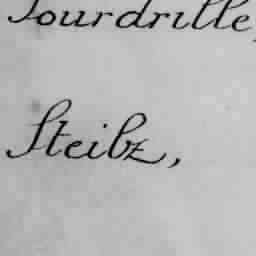 Jourdrille,
Steibz,